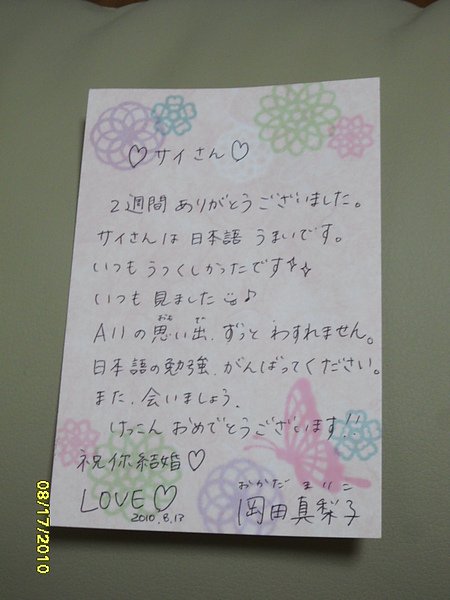 ♡サイさん♡
2週間 ありがとうございました。
サイさんは 日本語 うまいです。
いつも うつくしかったです
いつも 見ました ♪
Allの思い出、ずっと わすれません。
おも で
日本語の勉強、がんばってください。
また、会いましょう。
けっこん おめでとうございます!!
祝你結婚♡
LOVE♡
2010.8.17
おかだ まりこ
岡田真梨子
08/17/2010